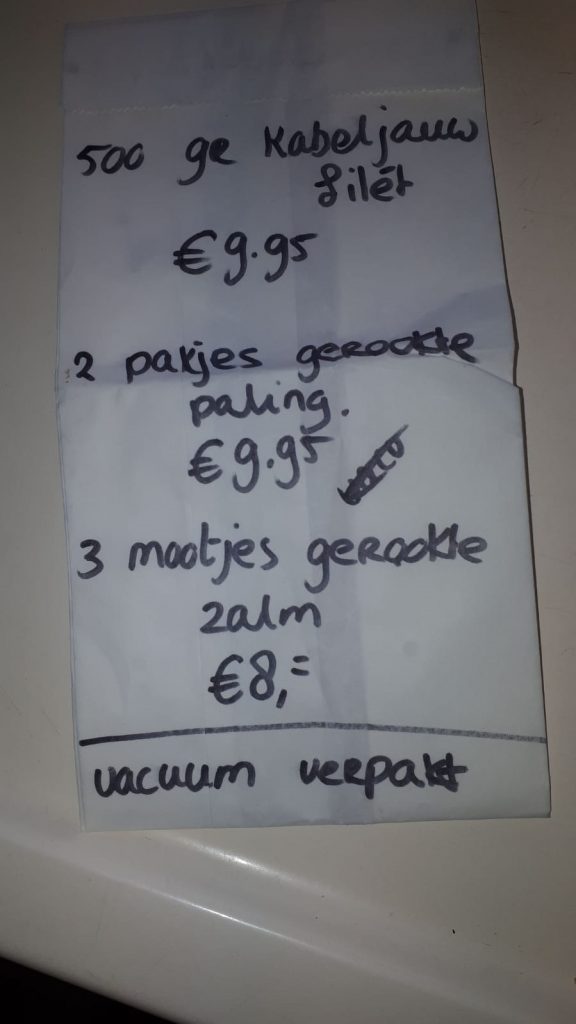 500 gr Kabeljauw
filét
€9.95
2 pakjes gerookte
paling.
€9.95
3 mootjes gerookte
zalm
€8,=
vacuum verpakt